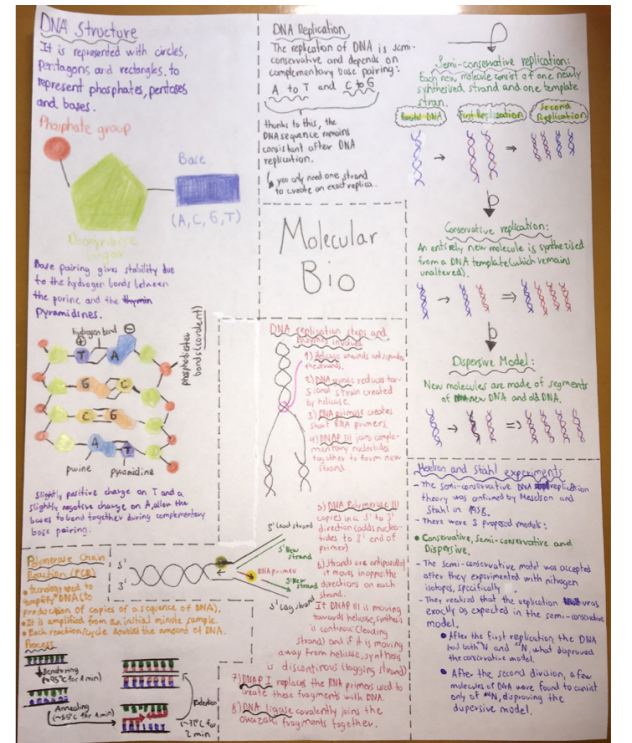 DNA Structure
It is represented with circles,
pentagons and rectangles, to
represent phosphates, pentoses
and bases.
Phosphate group
Base
(A, C, G, T)
Base pairing gives stability due
to the hydrogen bonds between
the purine and the
Pyramidines.
hydrogen bond
phosphodiester
bonds (covalent)
T A
G C
C G
A T
purine pyramidine
Slightly positive charge on T and a
slightly negative charge on A, allow the
bases to bend together during complementary
base pairing.
Polymerase Chain
Reaction (PCR)
used to
"amplify" DNA (to
production of copies of a sequence of DNA).
It is amplified from an initial minute sample.
Each reaction cycle doubles the amount of DNA.
Process
Denaturing
(~95°C for 1 min)
Annealing
(~55°C for 1 min)
Extention
(~72°C for
2 min
DNA Replication
The replication of DNA is semi-
conservative and depends on
complementary base pairing:
A to T and C to G
thanks to this, the
DNA sequence remains
consistant after DNA
replication.
you only need one strand
to create an exact replica.
Molecular
Bio
DNA replication steps and
involved
1) Helicase unwinds and
the strands.
2) DNA reduces tor-
sional strain created
by helicase.
3) DNA primase creates
short RNA primers.
4) DNAP III joins comple-
mentary nucleotides
together to form new
strand.
5) DNA Polymerase III
copies in a 5' to 3'
direction (adds nucleo-
tides to 3' end of
primer)
6) Strands are antiparallel
it moves in opposite
directions on each
strand.
If DNAP III is moving
towards helicase, synthesis
is continous (leading
strand) and if it is moving
away from helicase, synthesis
is discontinous (lagging strand)
7) DNAP I replaces the RNA primers used to
create these fragments with DNA.
8) DNA ligase covalently joins the
okazaki fragments together.
5'
3'
3' Lead strand
5' New
strand
RNA primer
3' New
strand
5' Lag strand
Semi-conservative replication:
Each new molecule consist of one newly
synthesized strand and one template
stran.
Parental DNA First Replication Second
Replication
Conservative replication:
An entirely new molecule is synthesized
from a DNA template (which remains
unaltered).
Dispersive Model:
New molecules are made of segments
of new DNA and old DNA.
Meselson and Stahl experiments
- The semi-conservative DNA replication
theory was confirmed by Meselson and
Stahl in 1958.
- There were 3 proposed models:
Conservative, Semi-conservative and
Dispersive.
- The semi-conservative model was accepted
after they experimented with nitrogen
isotopes, specifically
- They realized that the replication was
exactly as expected in the semi-conservative
model.
After the first replication the DNA
had both N and N, what disproved
the conservative model.
After the second division, a few
molecules of DNA were found to consist
only of N, disproving the
dispersive model.